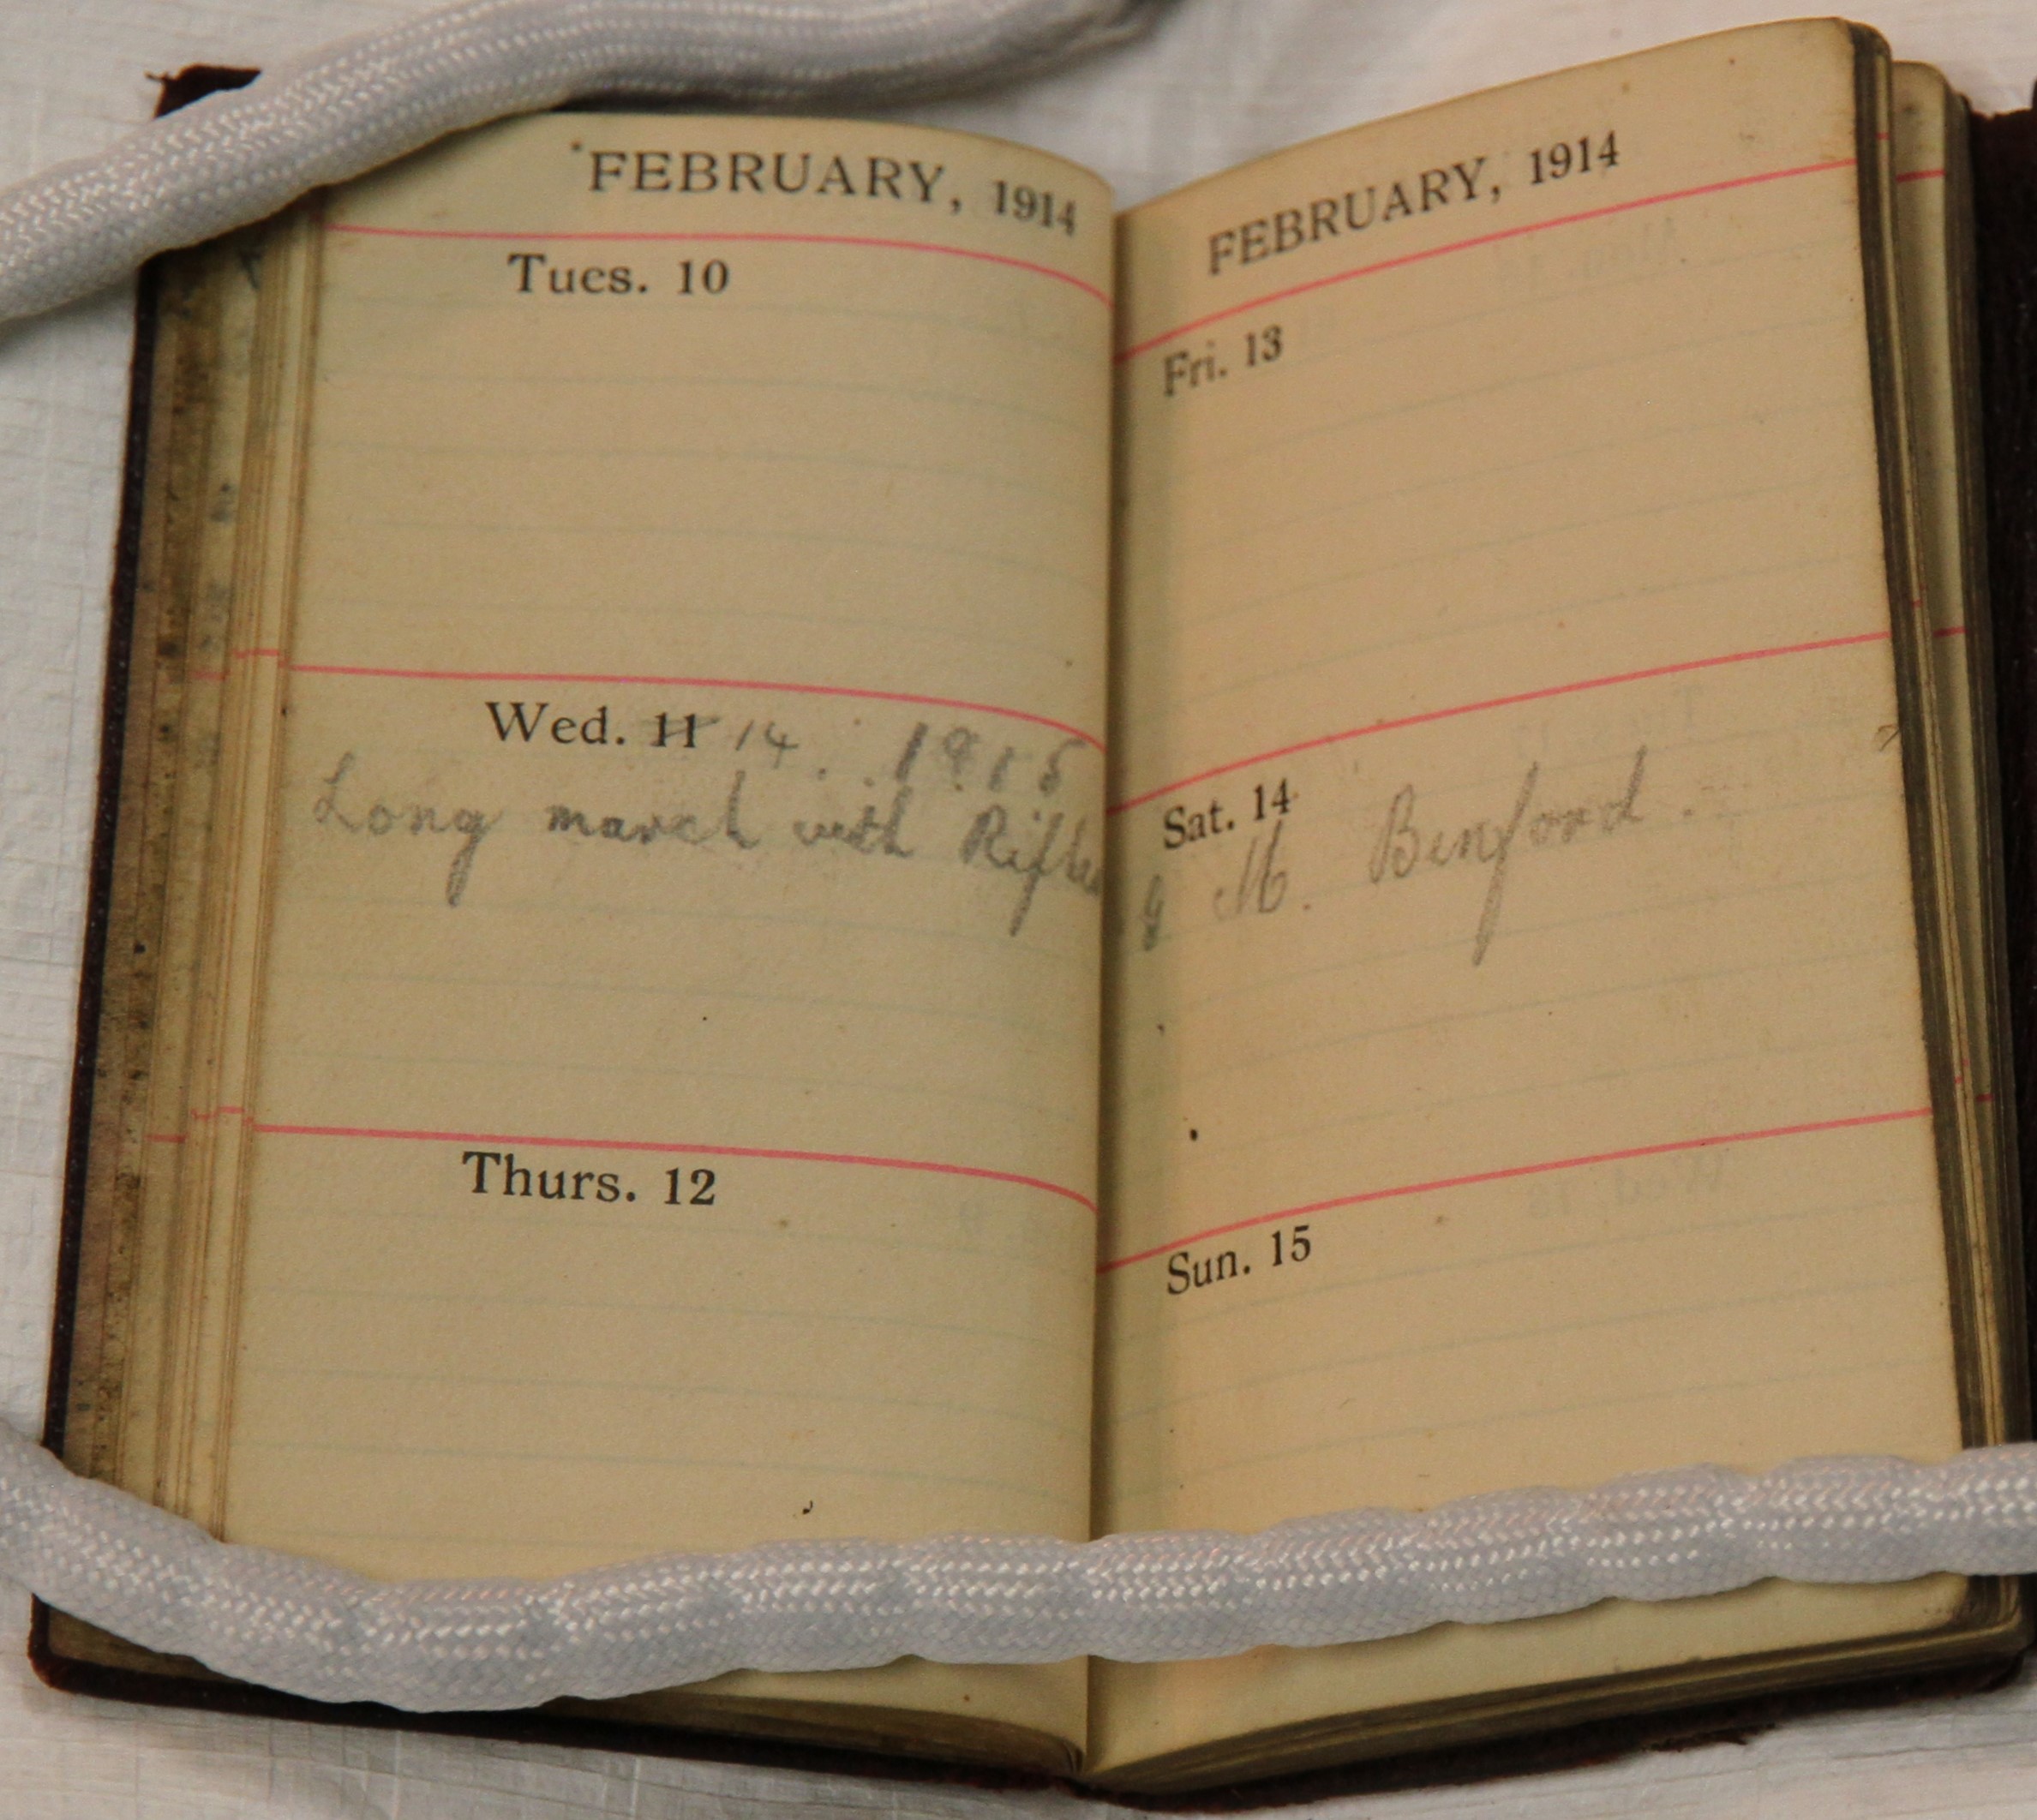 FEBRUARY, 1914
Tues. 10
Wed. 11 14. 1915
Long march with Rifles
Thurs. 12
FEBRUARY, 1914
Fri. 13
Sat. 14
M. Binford.
Sun. 15